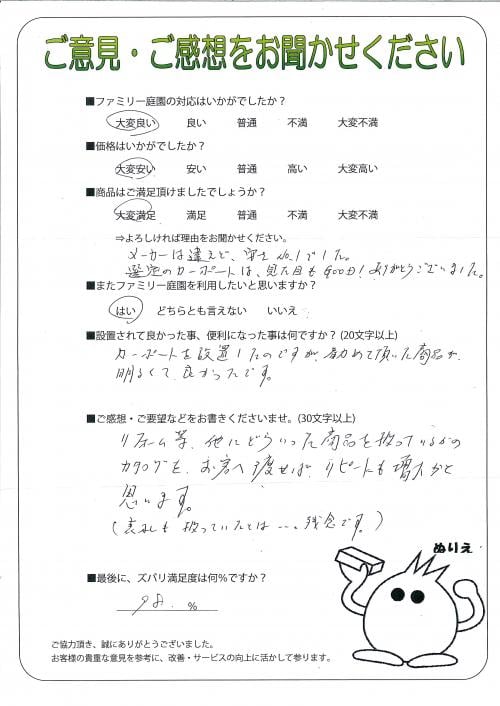 ご意見・ご感想をお聞かせください
■ファミリー庭園の対応はいかがでしたか？
大変良い 良い 普通 不満 大変不満
■価格はいかがでしたか？
大変安い 安い 普通 高い 大変高い
■商品はご満足頂けましたでしょうか？
大変満足 満足 普通 不満 大変不満
⇒よろしければ理由をお聞かせください。
メーカーは違えど、 No.1でした。
選定のカーポートは、見た目もGOOD！ありがとうございました。
■またファミリー庭園を利用したいと思いますか？
はい どちらとも言えない いいえ
■設置されて良かった事、便利になった事は何ですか？(20文字以上)
カーポートを設置したのですが、勧めて頂いた商品が、
明るくて良かったです。
■ご感想・ご要望などをお書きくださいませ。(30文字以上)
リフォーム等、他にどういった商品を扱っているかの
カタログを、お客へ渡せば、リピートも増えるかと
思います。
(表札も扱っていたとは…。残念です。)
ぬりえ
■最後に、ズバリ満足度は何％ですか？
98. %
ご協力頂き、誠にありがとうございました。
お客様の貴重な意見を参考に、改善・サービスの向上に活かして参ります。